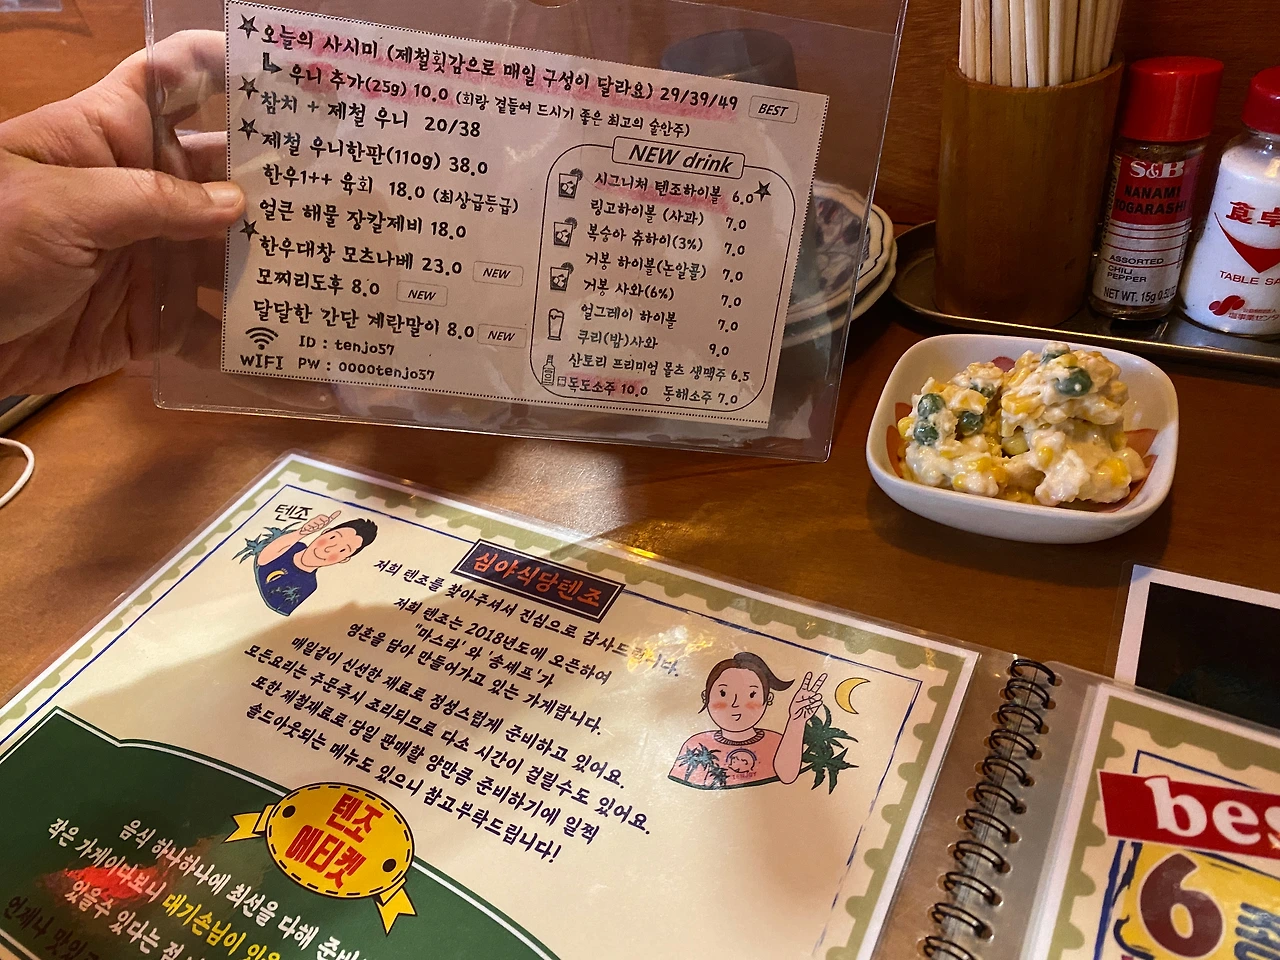 오늘의 사시미 (제철횟감으로 매일 구성이 달라요) 29/39/49 BEST
우니 추가(25g) 10.0 (회랑 곁들여 드시기 좋은 최고의 술안주)
참치 + 제철 우니 20/38
제철 우니한판(110g) 38.0
한우1++ 육회 18.0 (최상급등급)
얼큰 해물 장칼제비 18.0
한우대창 모츠나베 23.0 NEW
모찌리도후 8.0 NEW
달달한 간단 계란말이 8.0 NEW
WIFI ID : tenjo57
PW : ooootenjo57
NEW drink
시그니처 텐조하이볼 6.0
링고하이볼 (사과) 7.0
복숭아 츄하이(3%) 7.0
거봉 하이볼(논알콜) 7.0
거봉 사와(6%) 7.0
얼그레이 하이볼 7.0
쿠리(밤)사와 9.0
산토리 프리미엄 몰츠 생맥주 6.5
독도소주 10.0 동해소주 7.0
S&B
NANAMI
TOGARASHI
ASSORTED
CHILI
PEPPER
NET WT. 15g
食卓
TABLE SA
텐조
심야식당텐조
저희 텐조를 찾아주셔서 진심으로 감사드립니다.
저희 텐조는 2018년도에 오픈하여
"마스타'와 '송셰프'가
영혼을 담아 만들어가고 있는 가게랍니다.
매일같이 신선한 재료로 정성스럽게 준비하고 있어요.
모든요리는 주문즉시 조리되므로 다소 시간이 걸릴수도 있어요.
또한 제철재료로 당일 판매할 양만큼 준비하기에 일찍
솔드아웃되는 메뉴도 있으니 참고부탁드립니다!
텐조
에티켓
음식 하나하나에 최선을 다해 준비
작은 가게이다보니 대기손님이 있을
있을수 있다는 점
언제나 맛있
bes
6